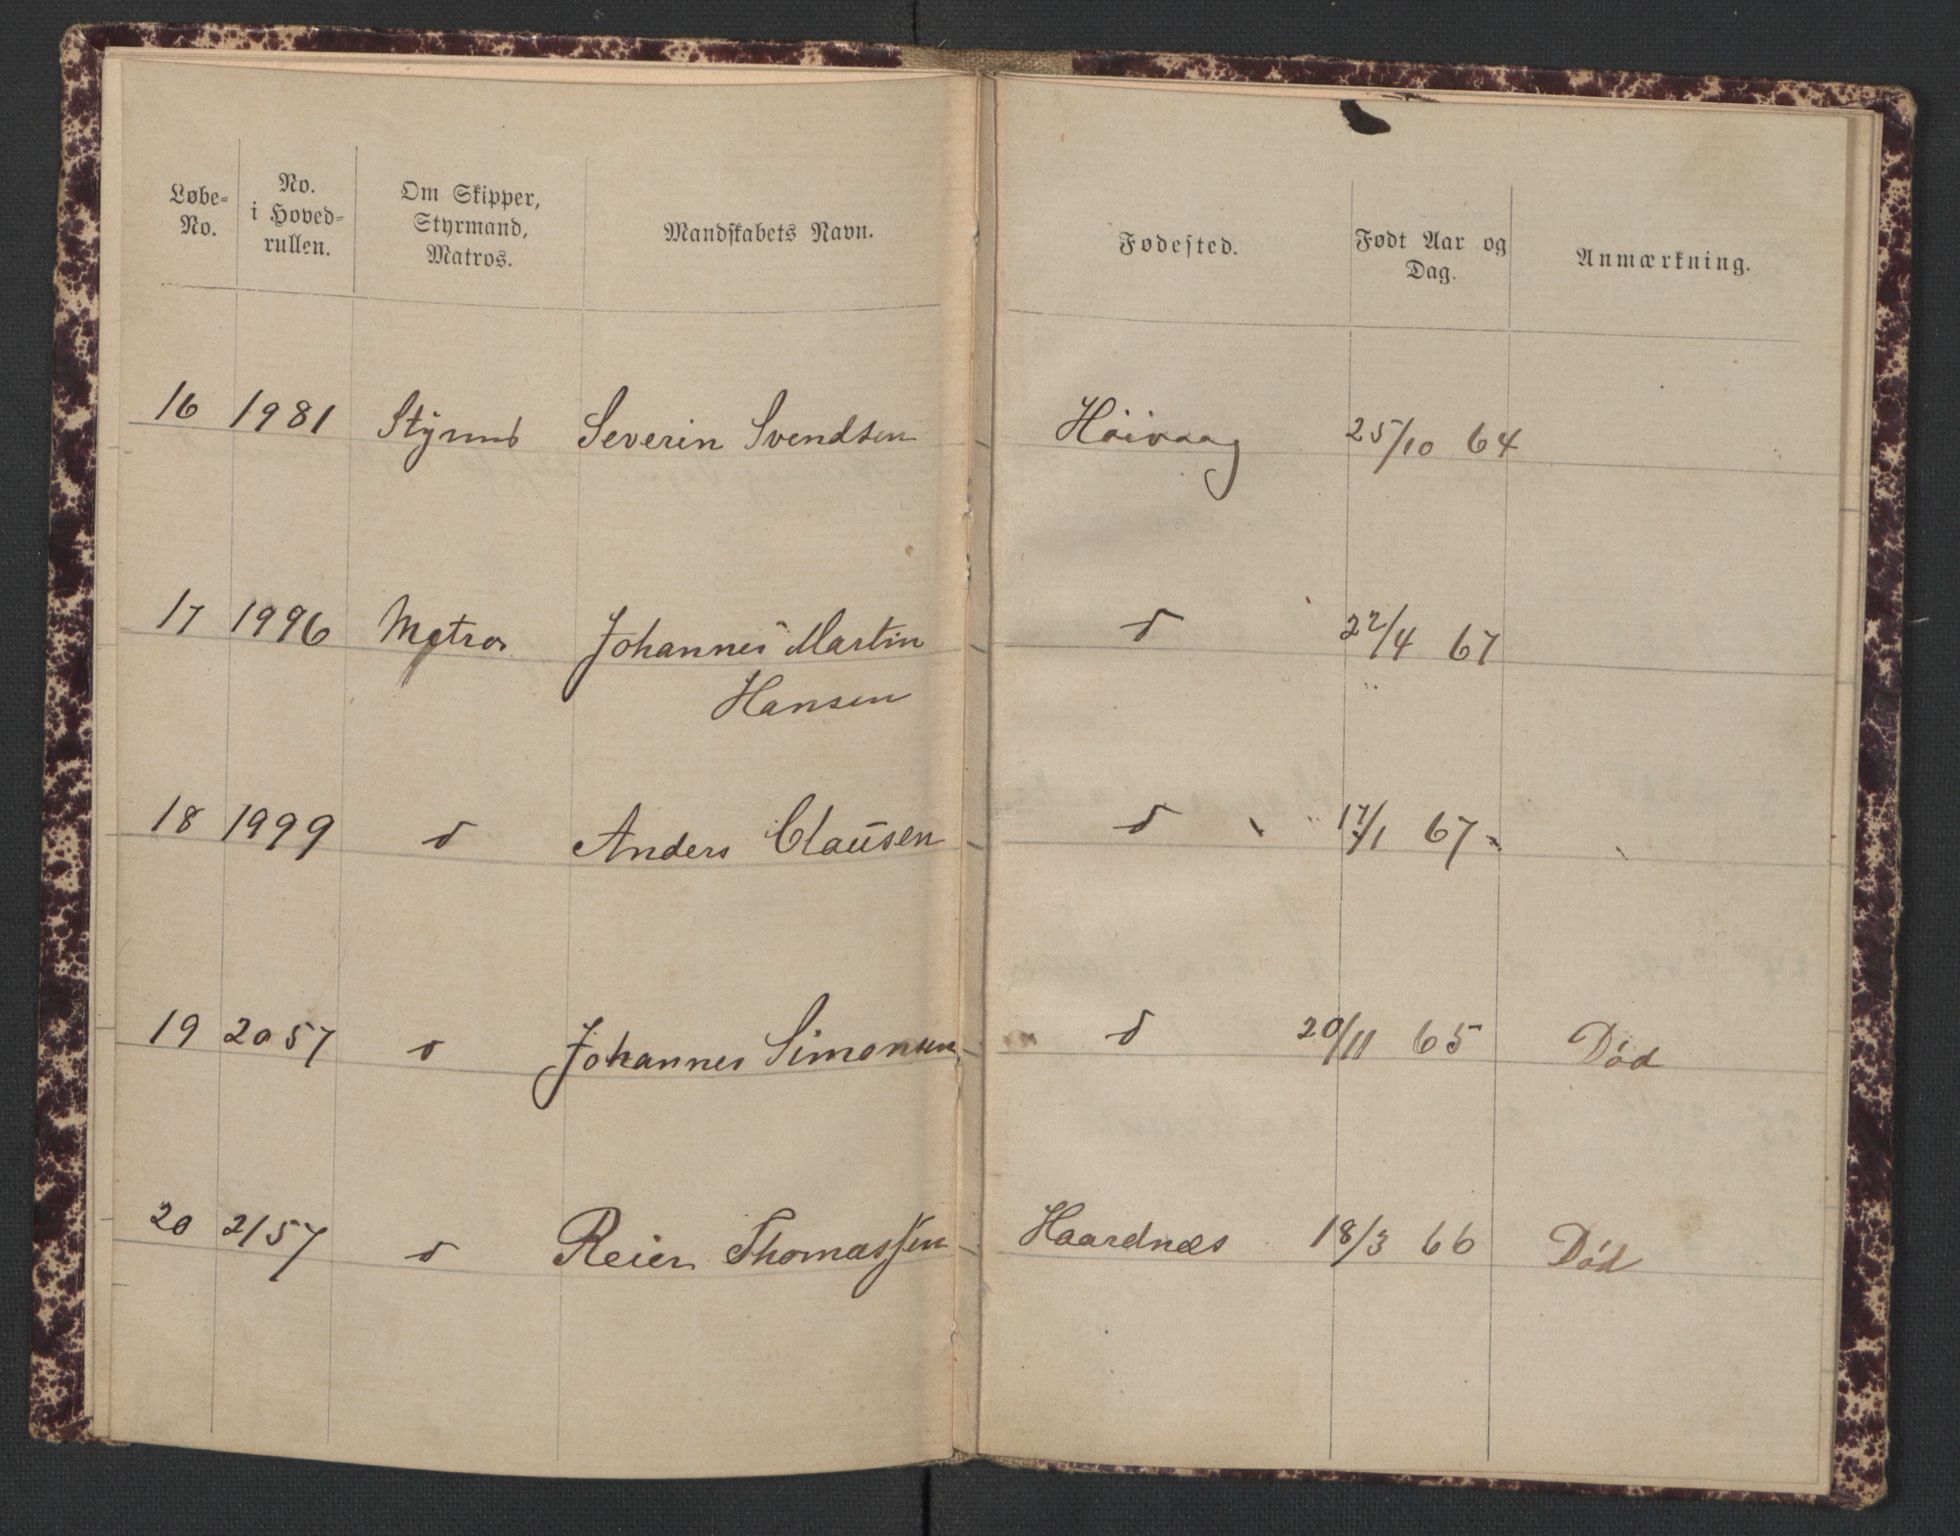 Løbe-No. No. i Hoved-rullen. Om Skipper, Styrmand, Matros. Mandskabets Navn. Fødested. Født Aar og Dag. Anmærkning.
16 1981 Styrmd Severin Svendsen Höivaag 25/10 64
17 1996 Matros Johannes Martin d 22/4 67
Hansen
18 1999 d Anders Clausen d 17/1 67
19 2057 d Johannes Simonsen d 20/11 65 Död
20 2157 d Reier Thomassen Haardnæs 18/3 66 Död